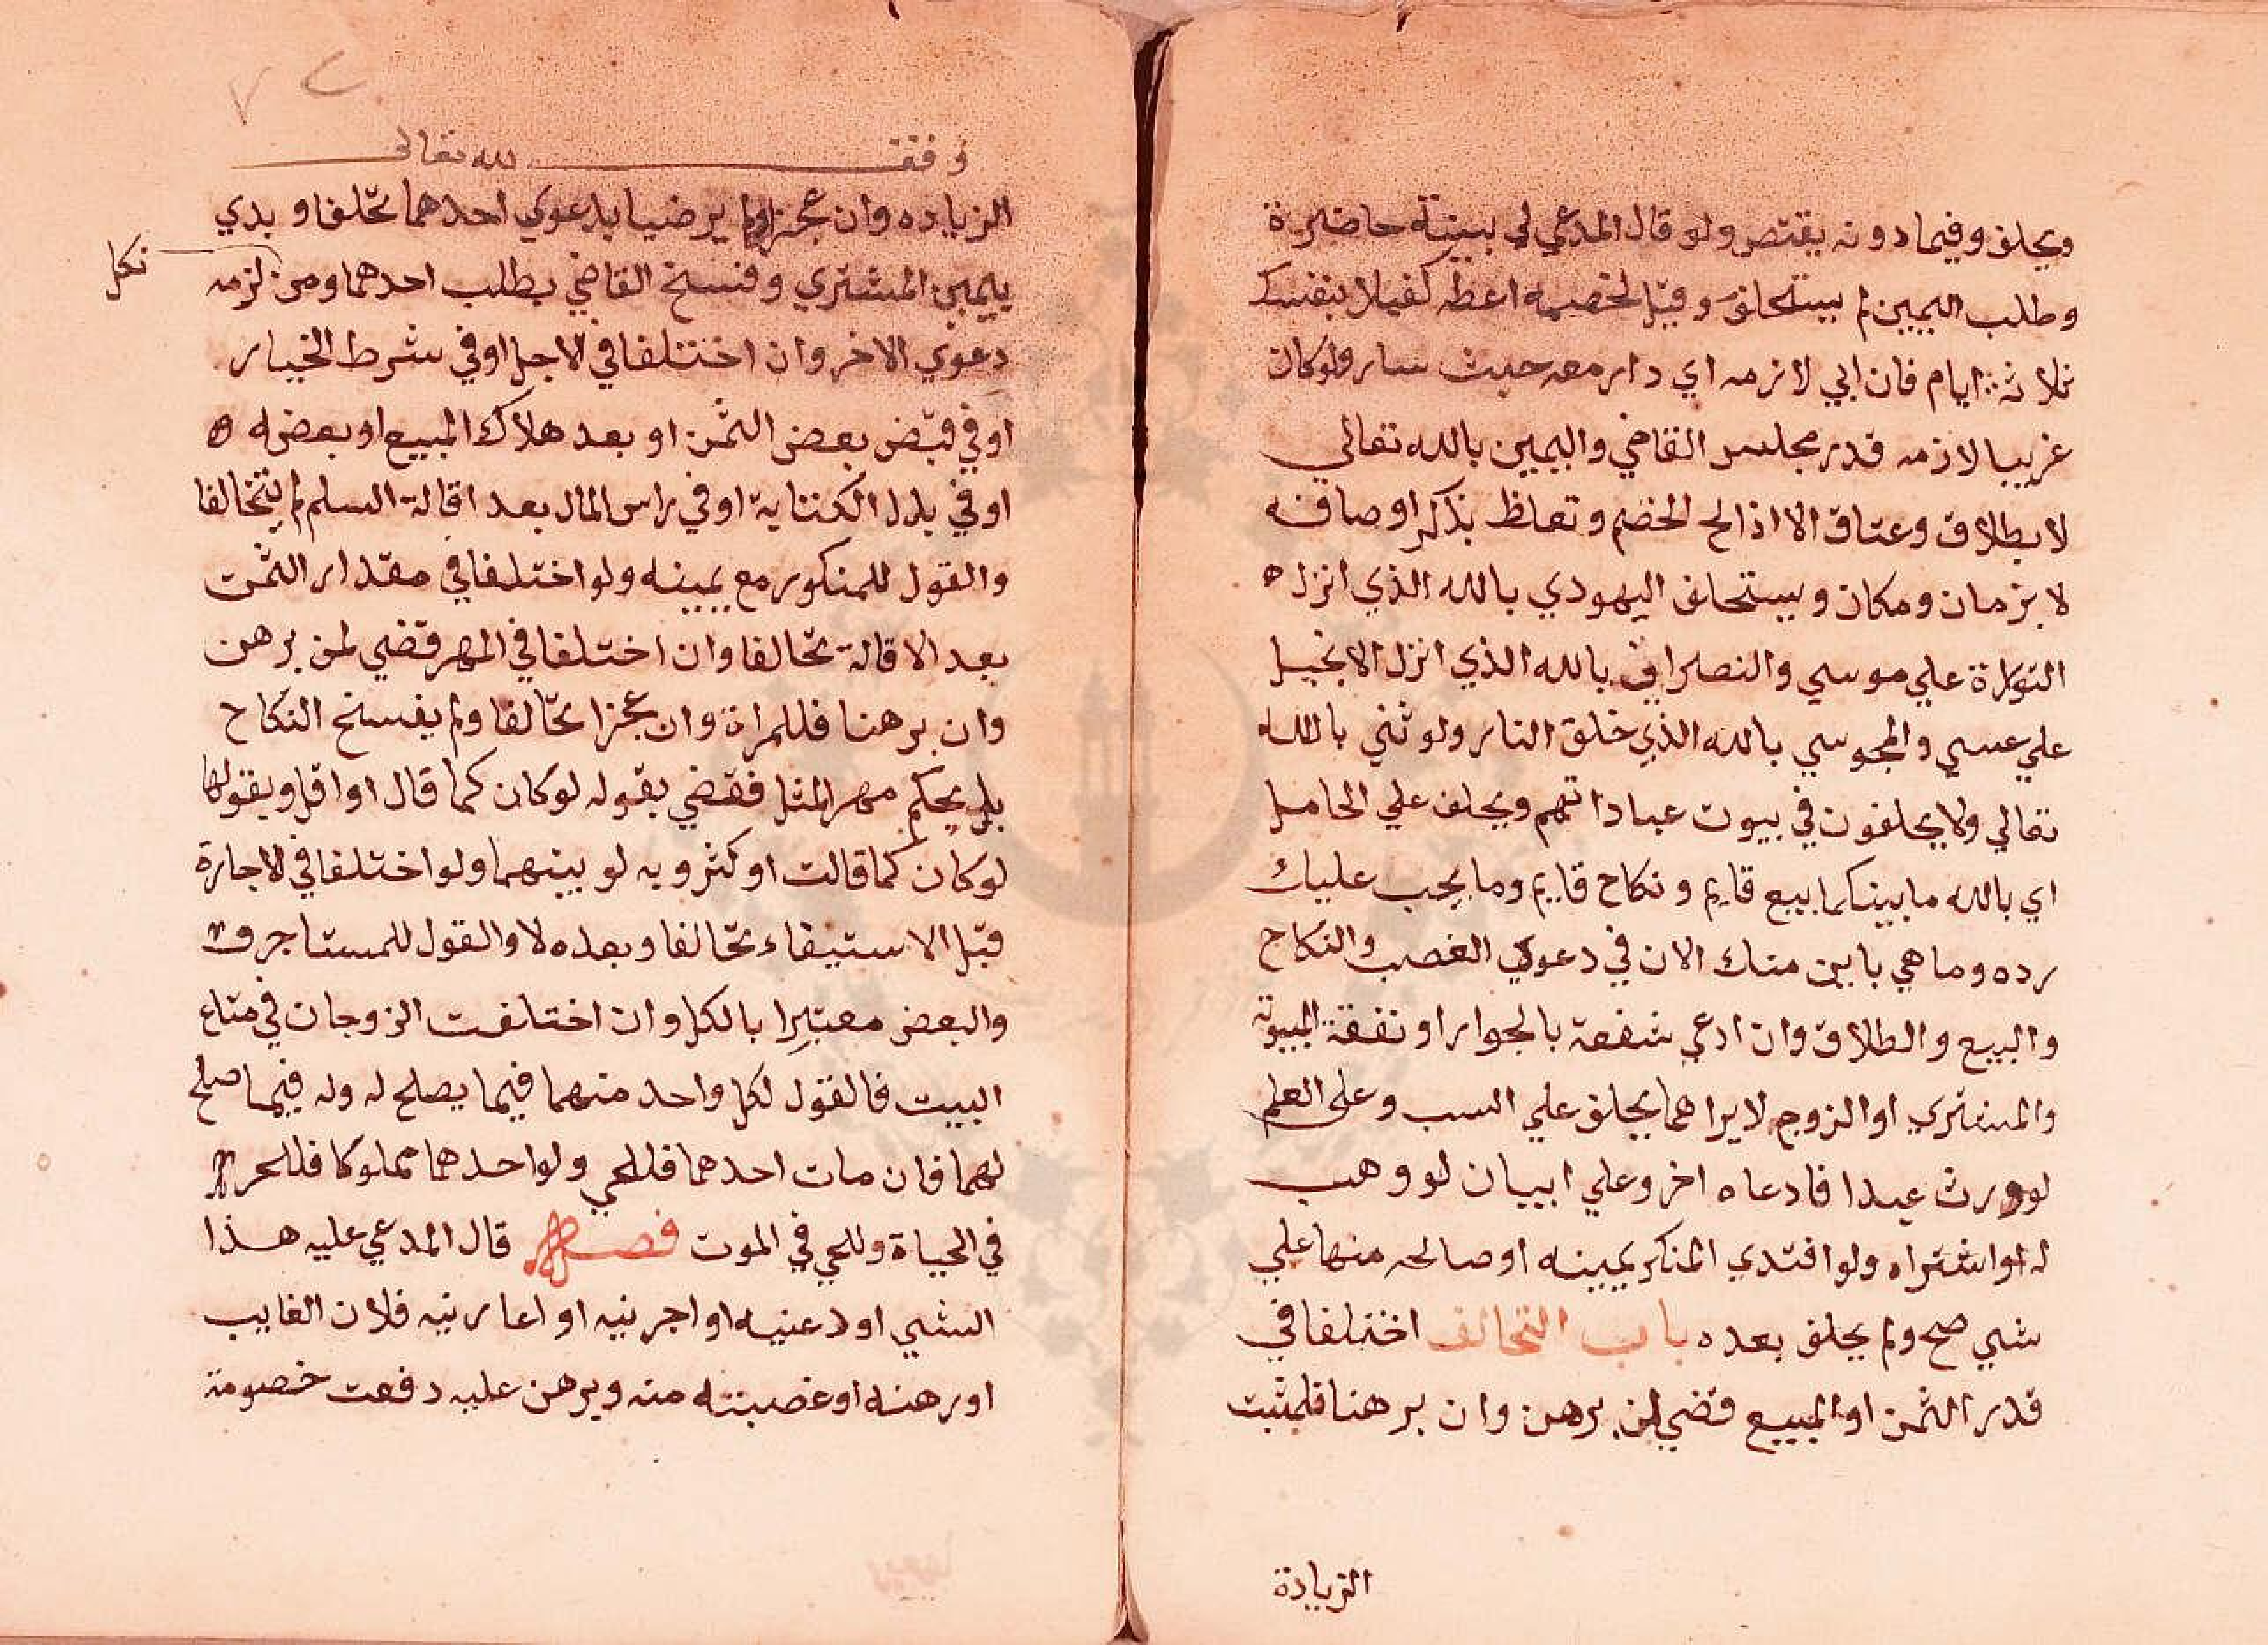 ويحلف وفيما دونه يقتص ولو قال المدعي لي بينة حاضرة
وطلب اليمين لم يستحلف وقيل لخصمه اعطه كفيلا بنفسك
ثلاثة ايام فان ابي لازمه اي دار معه حيث سار ولو كان
غريبا لازمه قدر مجلس القاضي واليمين بالله تعالي
لا بطلاق وعتاق الا اذا الح الخصم وتغلظ بذكر اوصافه
لا بزمان ومكان ويستحلف اليهودي بالله الذي انزل
التورة علي موسي والنصراني بالله الذي انزل الانجيل
علي عيسي والمجوسي بالله الذي خلق النار ولوثني بالله
تعالي ولا يحلفون في بيوت عباداتهم ويحلف علي الحاصل
اي بالله ما بينكما بيع قايم ونكاح قايم وما يجب عليك
رده وما هي باين منك الان في دعوي الغصب والنكاح
والبيع والطلاق وان ادعي شفعة بالجوار او نفقة المبيوتة
والمشتري او الزوج لا يراهما يحلف علي السب وعلى العلم
لو ورث عبدا فادعاه اخر وعلي ابيان لو وهب
له او اشتراه ولو افتدي المنكر يمينه او صالحه منها علي
شي صح ولم يحلف بعده باب التحالف اختلفا في
قدر الثمن او المبيع قضي لمن برهن وان برهنا فلمثبت
الزيادة
وقف لله تعالى
الزياده وان عجزا ولم يرضيا بدعوي احدهما تحلفا وبدي
بيمين المشتري وفسخ القاضي بطلب احدهما ومن لزمه
نكل
دعوي الاخر وان اختلفا في الاجل او في شرط الخيار
او في قبض بعض الثمن او بعد هلاك المبيع او بعضه
او في بدل الكتابة او في راس المال بعد اقالة السلم لم يتحالفا
والقول للمنكور مع يمينه ولو اختلفا في مقدار الثمن
بعد الاقالة تحالفا وان اختلفا في المهر قضي لمن برهن
وان برهنا فللمراة وان عجزا تحالفا ولم يفسخ النكاح
بل يحكم مهر المثل فقضي بقوله لو كان كما قال او اقل وبقولها
لو كان كما قالت او كثر وبه لو بينهما ولو اختلفا في الاجارة
قبل الاستيفاء تحالفا وبعده لا والقول للمستاجر
والبعض معتبرا بالكل وان اختلفت الزوجان في متاع
البيت فالقول لكل واحد منهما فيما يصلح له وله فيما صلح
لهما فان مات احدهما فللحي ولو احدهما مملوكا فللحر
في الحياة وللحي في الموت فصل قال المدعي عليه هذا
الشي اودعنيه او اجرنيه او اعارنيه فلان الغايب
او رهنه او غصبته منه وبرهن عليه دفعت خصومة